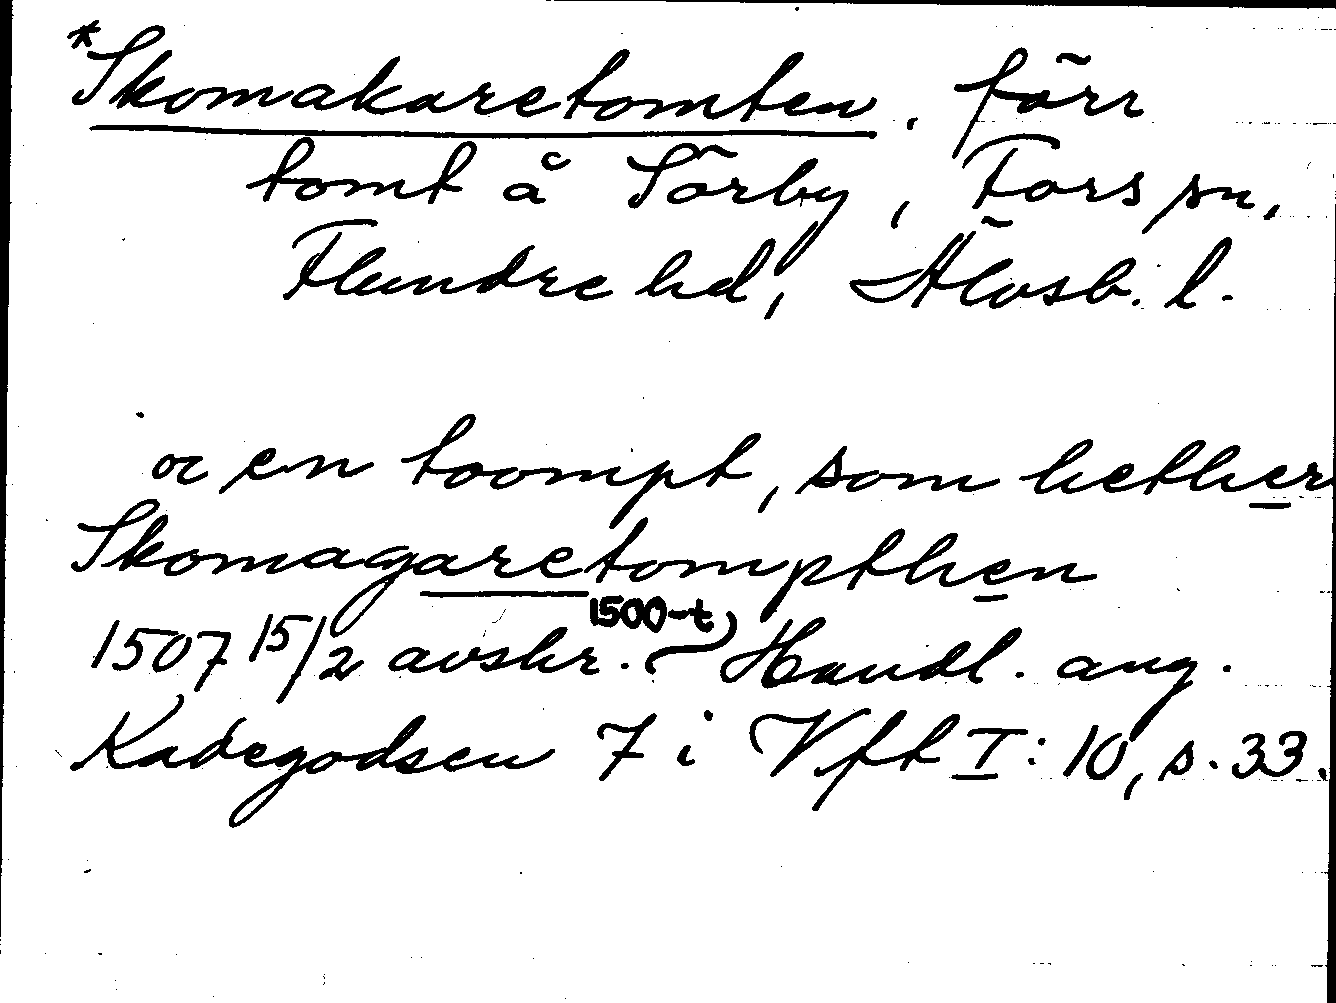 *Skomakaretomten, förr
tomt å Sörby, Fors sn,
Flundre hd, Älvsb. l.
oc en toompt, som hether
Skomagaretompthen
1507 15/2 avskr. 1500-t Handl. ang.
Kadegodsen 7 i Vft I: 10, s. 33.